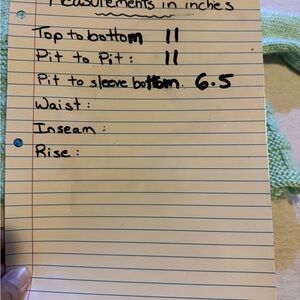 Measurements in inches
Top to bottom 11
Pit to Pit : 11
Pit to sleeve bottom. 6.5
Waist :
Inseam :
Rise :